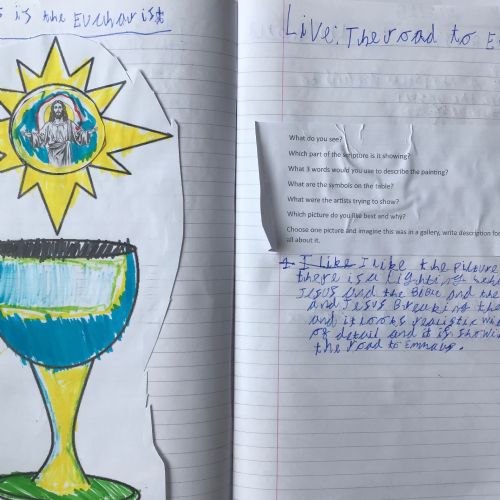 s is the Eucharist
Live: The road to E
What do you see?
Which part of the scripture is it showing?
What 3 words would you use to describe the painting?
What are the symbols on the table?
What were the artists trying to show?
Which picture do you like best and why?
Choose one picture and imagine this was in a gallery, write description for
all about it.
I like I like the picture
there is a lighting
Jesus and the and the
and Jesus breaking the
and it looks realistic
of detail and it is
the road to Emmaus.